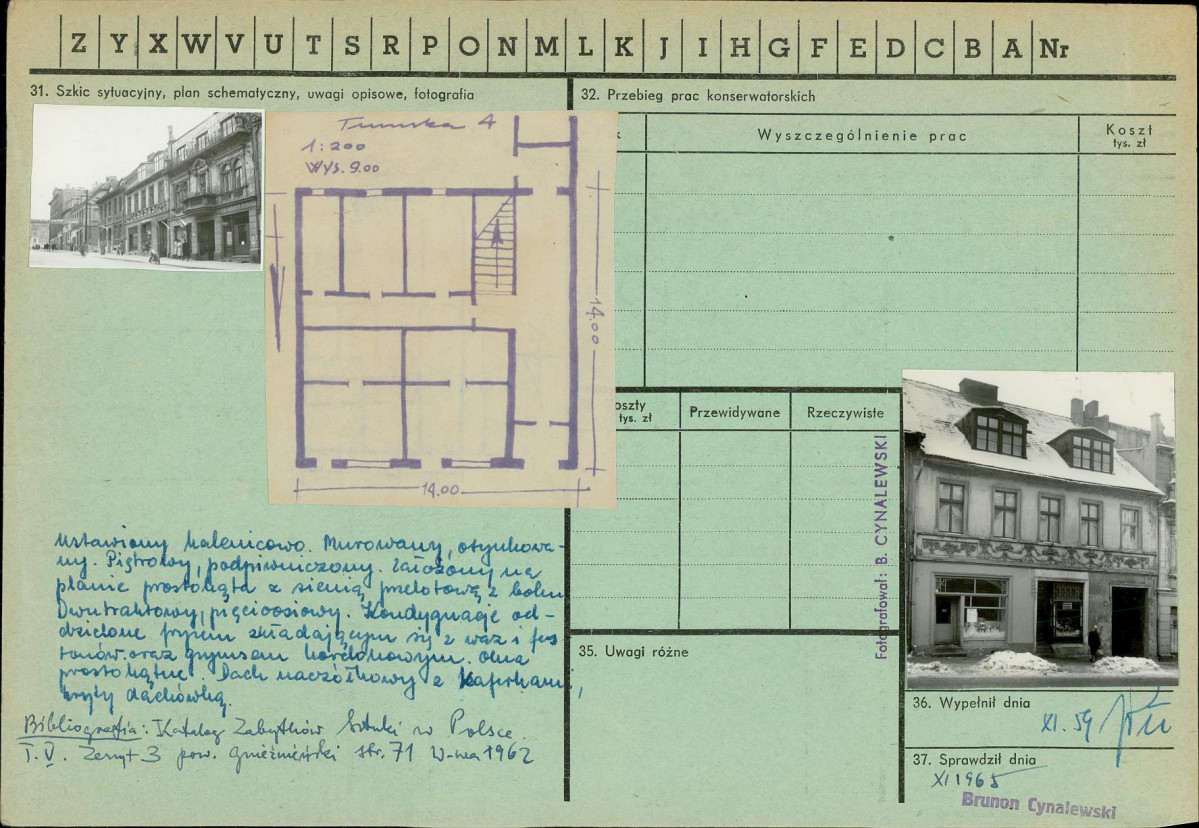 Z Y X W V U T S R P O N M L K J I H G F E D C B A Nr
31. Szkic sytuacyjny, plan schematyczny, uwagi opisowe, fotografia
Tumska 4
1:200
Wys. 9.00
14.00
14.00
ustawiony kalenicowo. Murowany, otynkowa-
ny. Piętrowy, podpiwniczony. Założony na
planie prostokąta z sienią przelotową z boku
Dwutraktowy, pięcioosiowy. Kondygnacje od-
dzielone fryzem składającym się z waz i fes
tonów oraz gzymsem kordonowym. Okna
prostokątne. Dach naczółkowy z kafrkami,
kryty dachówką.
Bibliografia: Katalog Zabytków Sztuki w Polsce.
T. V. Zeszyt 3 pow. gnieźnieński str. 71 W-wa 1962
32. Przebieg prac konserwatorskich
k
Wyszczególnienie prac
Koszt
tys. zł
oszty
tys. zł
Przewidywane
Rzeczywiste
Fotografował: B. CYNALEWSKI
35. Uwagi różne
36. Wypełnił dnia
XI. 59
37. Sprawdził dnia
XI 1965
Brunon Cynalewski